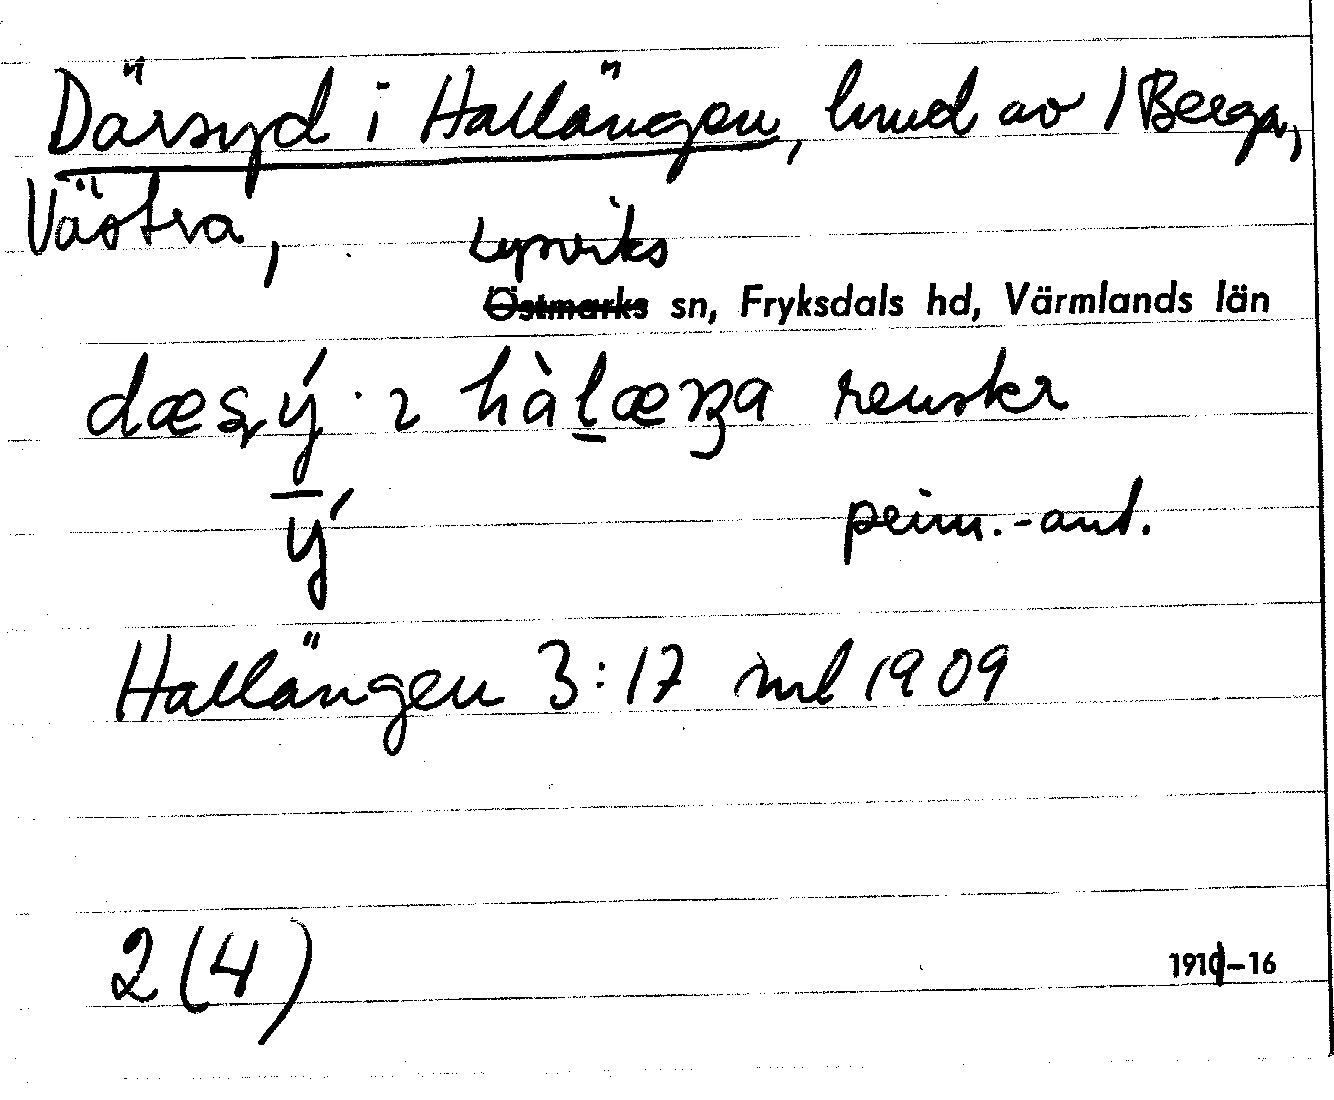 Därsyd i Hallängen, hmd av 1 Berga,
Västra,
Lysviks
Östmarks sn, Fryksdals hd, Värmlands län
renskr
ý
prim.-ant.
Hallängen 3:17 jml 1909
2(4)
1911-16